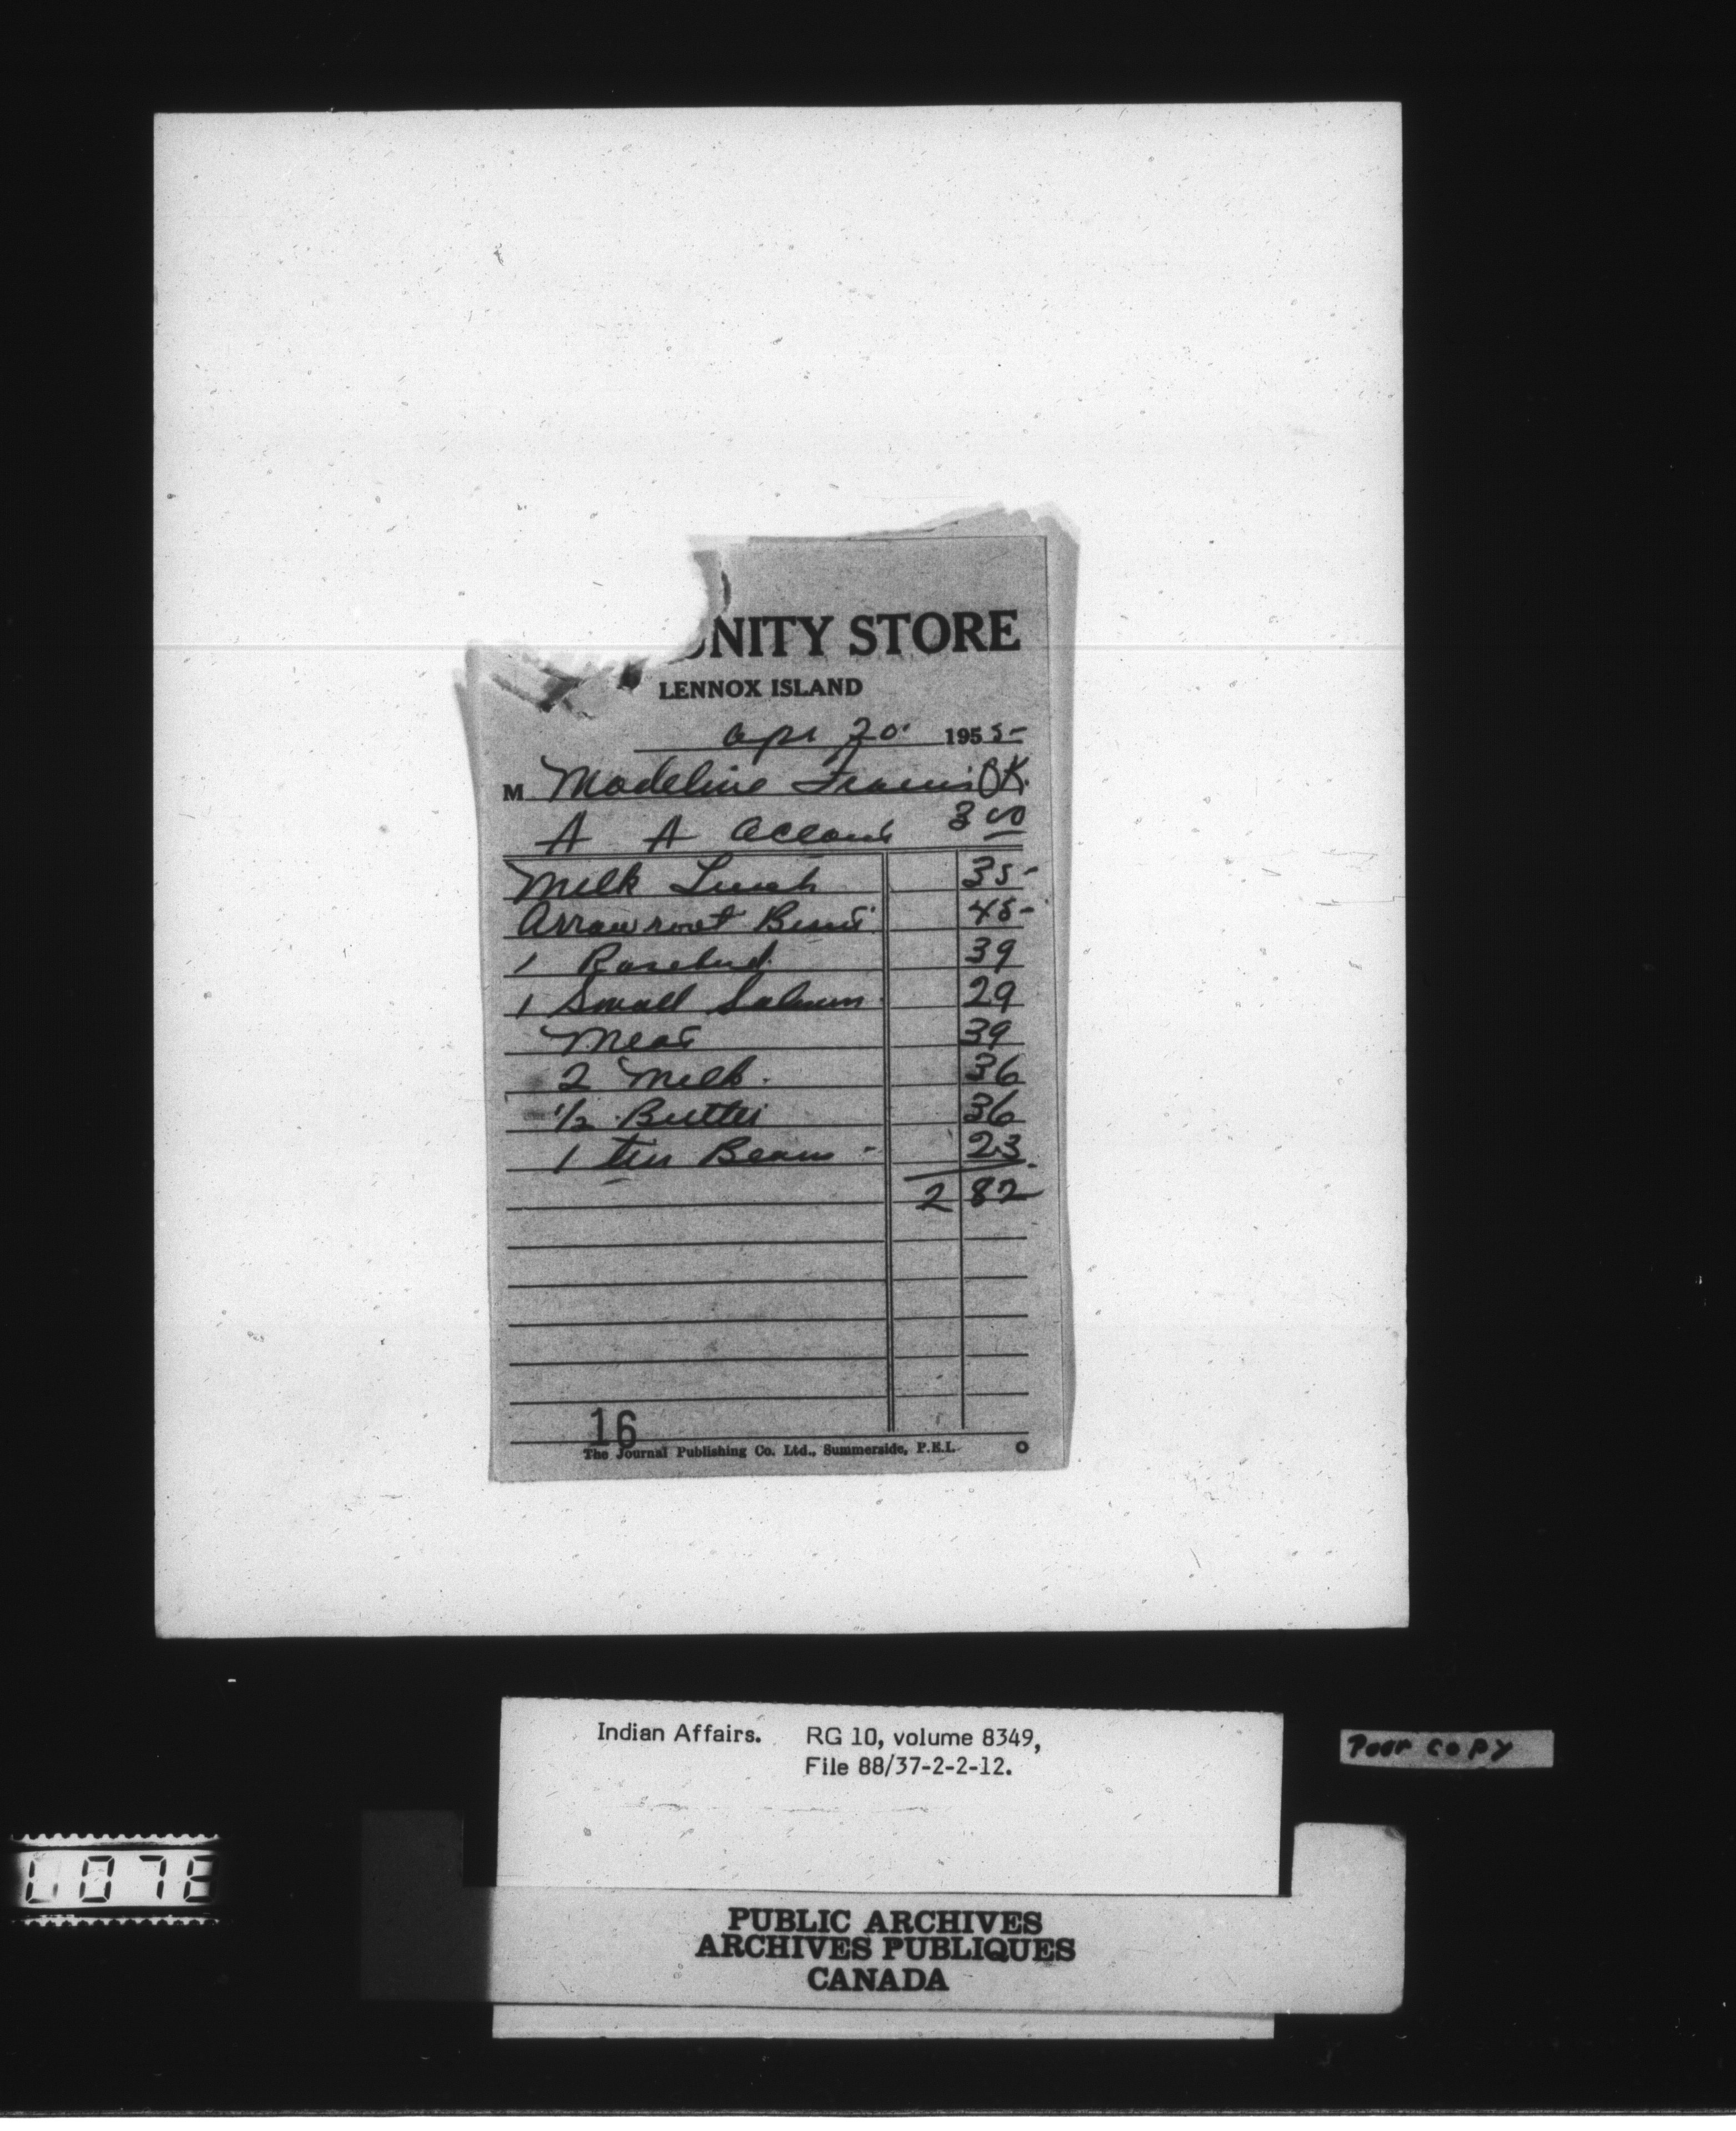 NITY STORE
LENNOX ISLAND
Apr 20 1955
M Madeline Francis OK.
A A Account 3 00
Milk Lunch 35
Arrowroot Biscuit 45
1 Rosebud. 39
1 Small Salmon 29
Meat 39
2 Milk. 36
1/2 Butter 36
1 tin Beans - 23
2 82
16
The Journal Publishing Co. Ltd., Summerside, P.E.I.
Indian Affairs. RG 10, volume 8349,
File 88/37-2-2-12.
Poor copy
PUBLIC ARCHIVES
ARCHIVES PUBLIQUES
CANADA